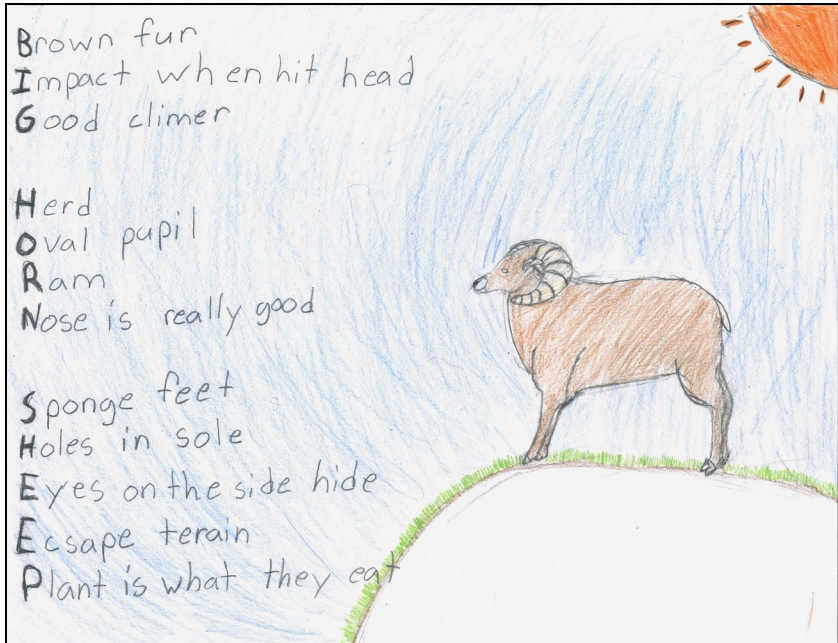 Brown fur
Impact when hit head
Good climer
Herd
Oval pupil
Ram
Nose is really good
Sponge feet
Holes in sole
Eyes on the side hide
Ecsape terain
Plant is what they eat